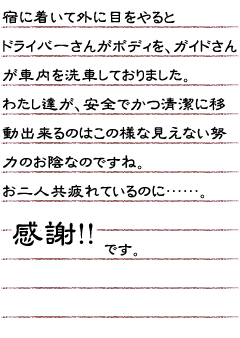 宿に着いて外に目をやると
ドライバーさんがボディを、ガイドさん
が車内を洗車しておりました。
わたし達が、安全でかつ清潔に移
動出来るのはこの様な見えない努
力のお陰なのですね。
お二人共疲れているのに……。
感謝!!です。